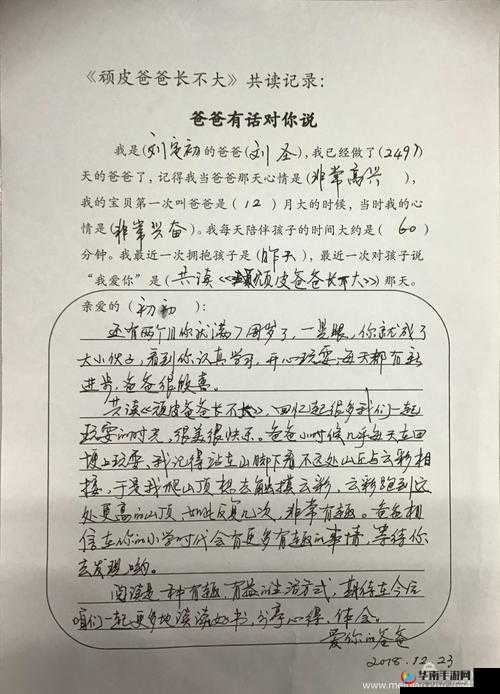 《顽皮爸爸长不大》共读记录：
爸爸有话对你说
我是(刘定初)的爸爸(刘圣)，我已经做了(2497)
天的爸爸了，记得我当爸爸那天心情是(非常高兴)，
我的宝贝第一次叫爸爸是(12)月大的时候，当时我的心
情是(非常兴奋)。我每天陪伴孩子的时间大约是(60)
分钟。我最近一次拥抱孩子是(昨天)，最近一次对孩子说
“我爱你”是(共读《顽皮爸爸长不大》)那天。
亲爱的(初初)：
还有两个月你就满7周岁了，一晃眼，你就成了
大小伙子，看到你认真学习，开心玩耍，每天都有新
进步，爸爸很欣喜。
共读《顽皮爸爸长不大》，回忆起很多我们一起
玩耍的时光，很美很快乐。爸爸小时候几乎每天在田
埂上玩耍，我记得站在山脚下看不远处山丘与云彩相
接，于是我爬山顶想去触摸云彩，云彩跑到远
处更高的山顶，如此反复几次，非常有趣。爸爸相
信在你的小学时代会有更多有趣的事情，等待你
去发现哟。
阅读是一种有趣、有益的生活方式，期待在今后
咱们一起更多地读读好书，分享心得、体会。
爱你的爸爸
2018.12.23
华南手游网